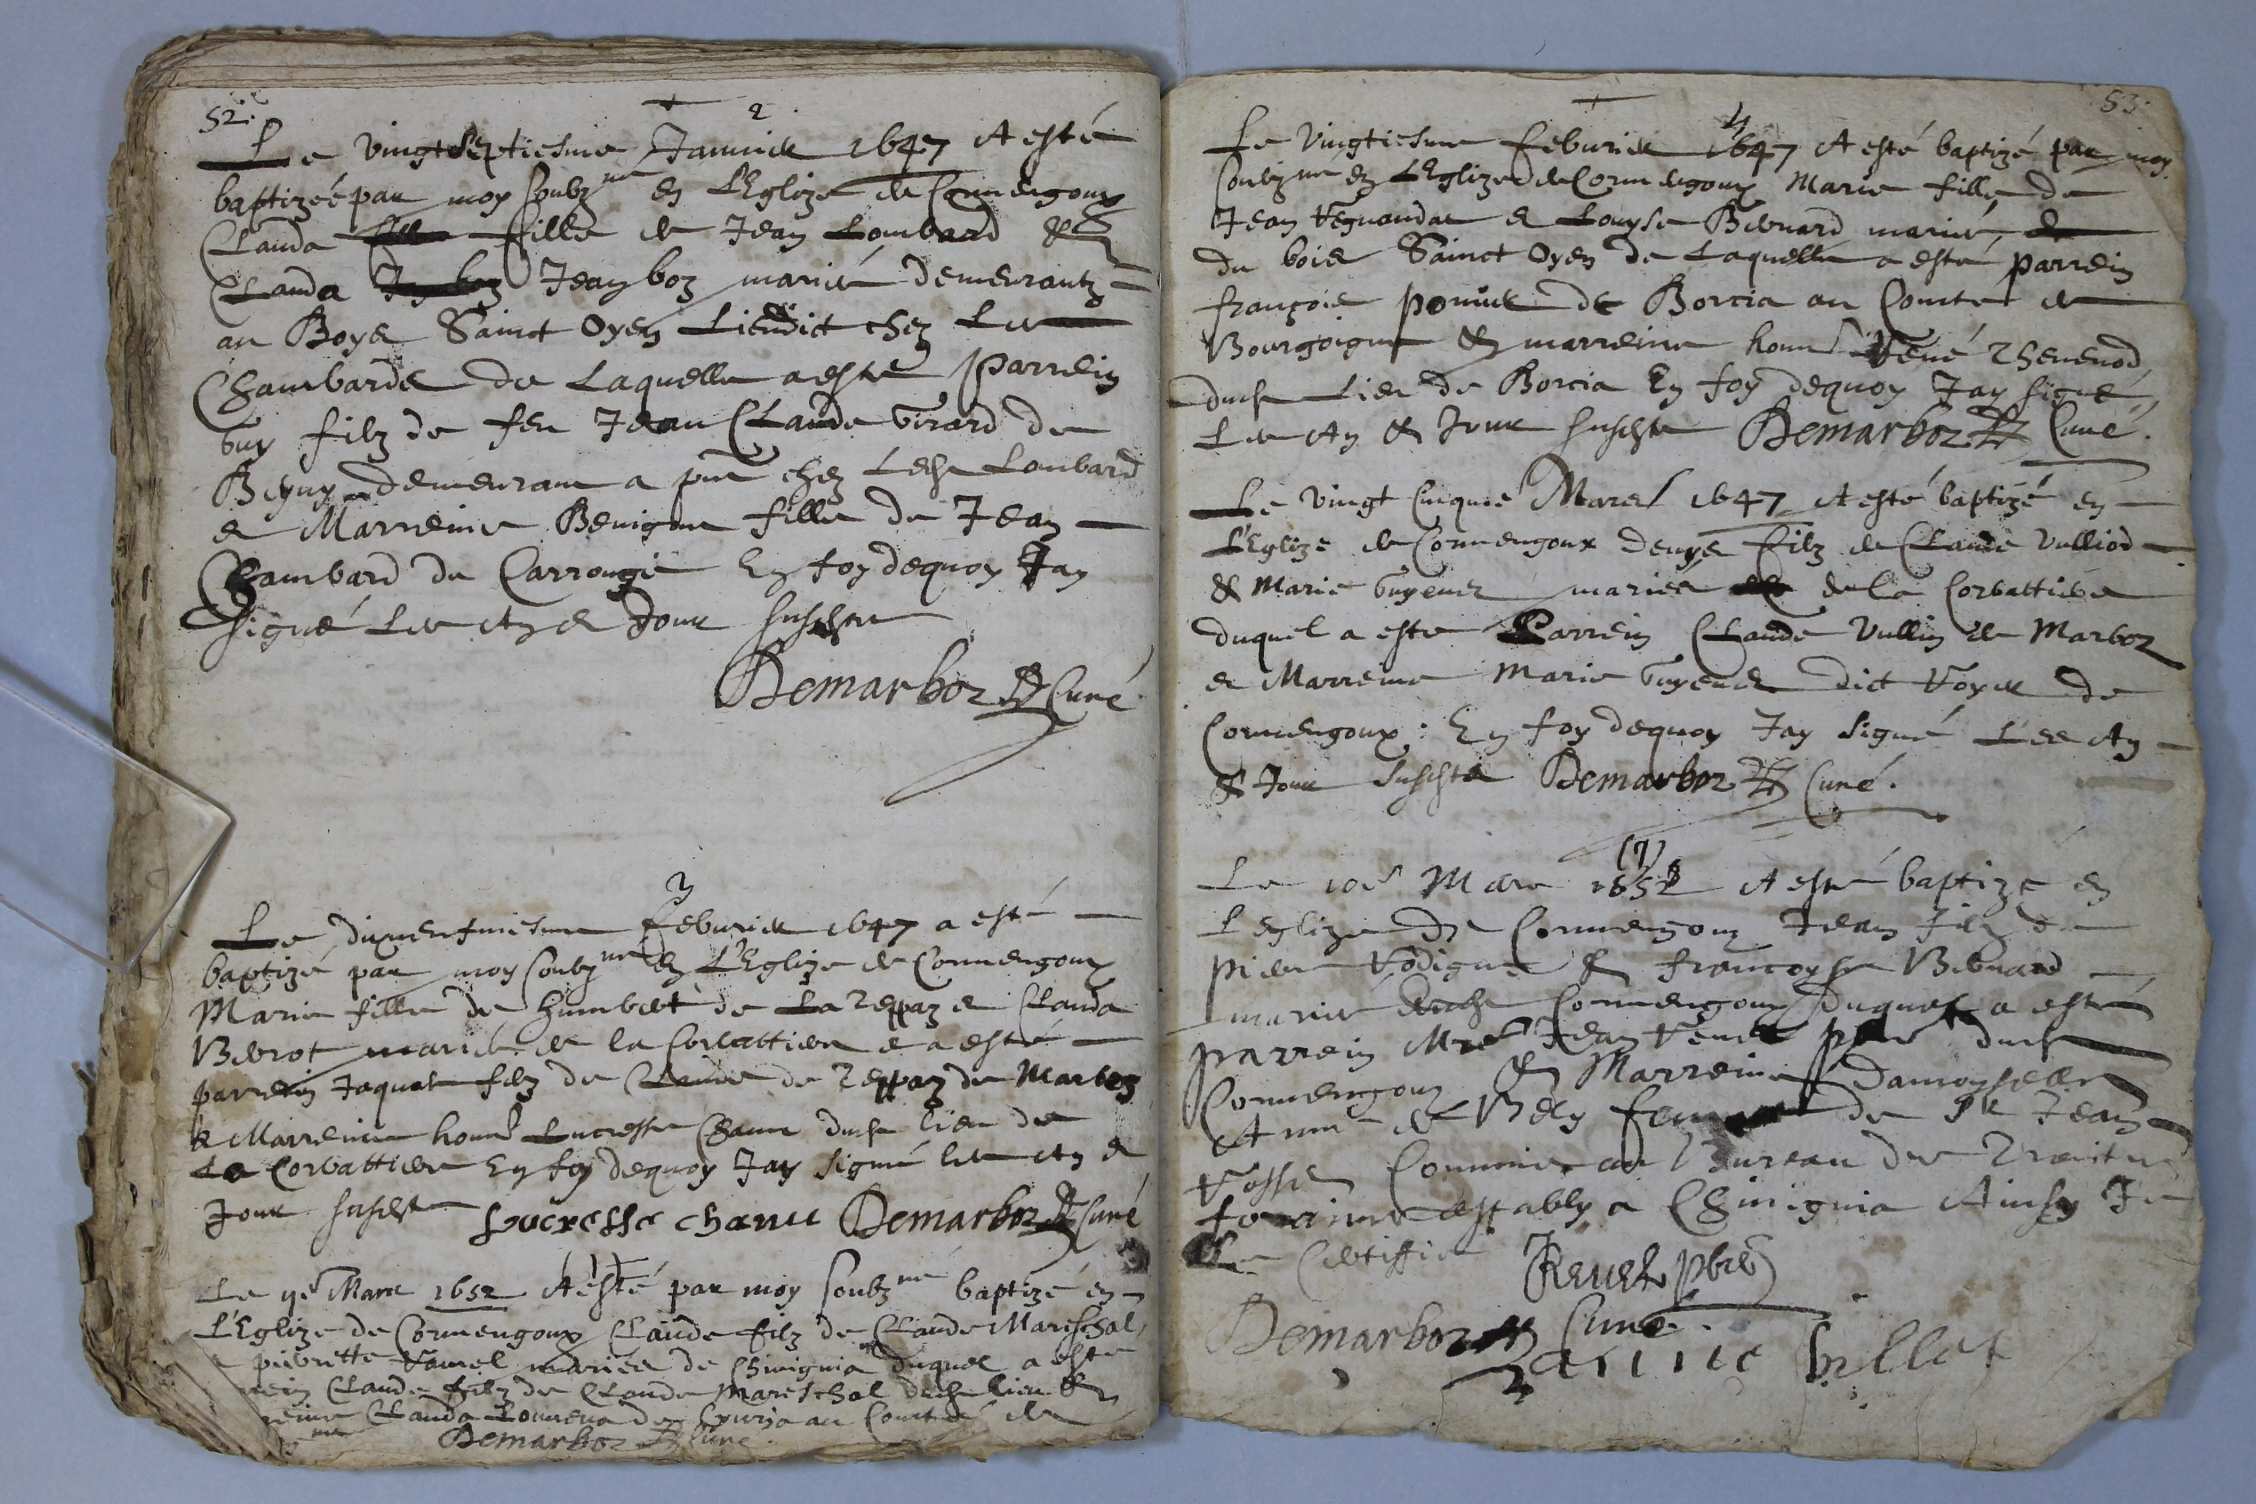 52.
2
Le vingt septiesme Janvier 1647 A esté
baptizée par moy soubz.né en L'Eglize de Cormengoux
Clauda fille de Jean Lombard &
Clauda Jean boz mariés demeurantz
au Boys Sainct Oyen Lieudict chez Les
Chambardz de Laquelle a esté Parrein
Guy filz de feu Jean Claude Girard de
Beyny demeurant a pnt chez Ledt Lombard
et Marreine Benigne fille de Jean
Chambard du Carrouge En foy dequoy Jay
signé Les An et Jour susdt
Demarboz Curé
3
Le dixneufviesme Febvrier 1647 a esté
baptizé par moy soubz.né en L'Eglize de Cormengoux
Marie fille de humbert de La Teppaz et Clauda
Bevrot mariés de la Corbattiere et a esté
parrein Jaques filz de Claude de Teppaz de Marboz
et Marreine honn Lucresse Chanu dudt lieu de
La Corbattiere En foy dequoy Jay signé les An et
Jour susdt Lucresse chanu Demarboz Curé
Le 9e Mars 1652 A esté par moy soubz.né baptizé en
L'Eglize de Cormengoux Claude filz de Claude Mareschal
pierrette Vamel mariés de Chivignia duquel a esté
rein Claude filz de Claude Mareschal dudt lieu &
reine Clauda de au Comté de
Demarboz Curé
53.
4
Le Vingtiesme Febvrier 1647 A esté baptizé par moy
soubz.né en L'Eglize de Cormengoux Marie fille de
Jean et Louyse Bernard mariés
du bois Sainct Oyen de Laquelle a esté parrein
françois de Borcia au Comté de
Bourgoigne & marreine honn René Thevenod
dudt Lieu de Borcia En foy dequoy Jay signé
Les An & Jour susdt Demarboz Curé.
Le vingt cinquie Mars 1647 A esté baptizé en
L'Eglize de Cormengoux denys filz de Claude Vulliod
& Marie Guyenet mariés de la Corbattiere
duquel a esté Parrein Claude Vullin de Marboz
et Marreine Marie Guyenet dict Voyer de
Cormengoux: En foy dequoy Jay signé Les An
& Jour susdts Demarboz Curé.
(7)
Le 10e Mars 1652 A esté baptizé en
L'eglize de Cormengoux Jean filz de
pierre Rodigue & francoyse Bernard
mariés dudt Cormengoux duquel a esté
parrein Mre Jean Revel pbre dudt
Cormengoux & Marreine Damoyselle
Anne de Bely femme de Sr Jean
Commis au Bureau des Traictes
foraines establly a Chivignia Ainsy Je
Le Certiffie
Revel pbre
Demarboz Curé.